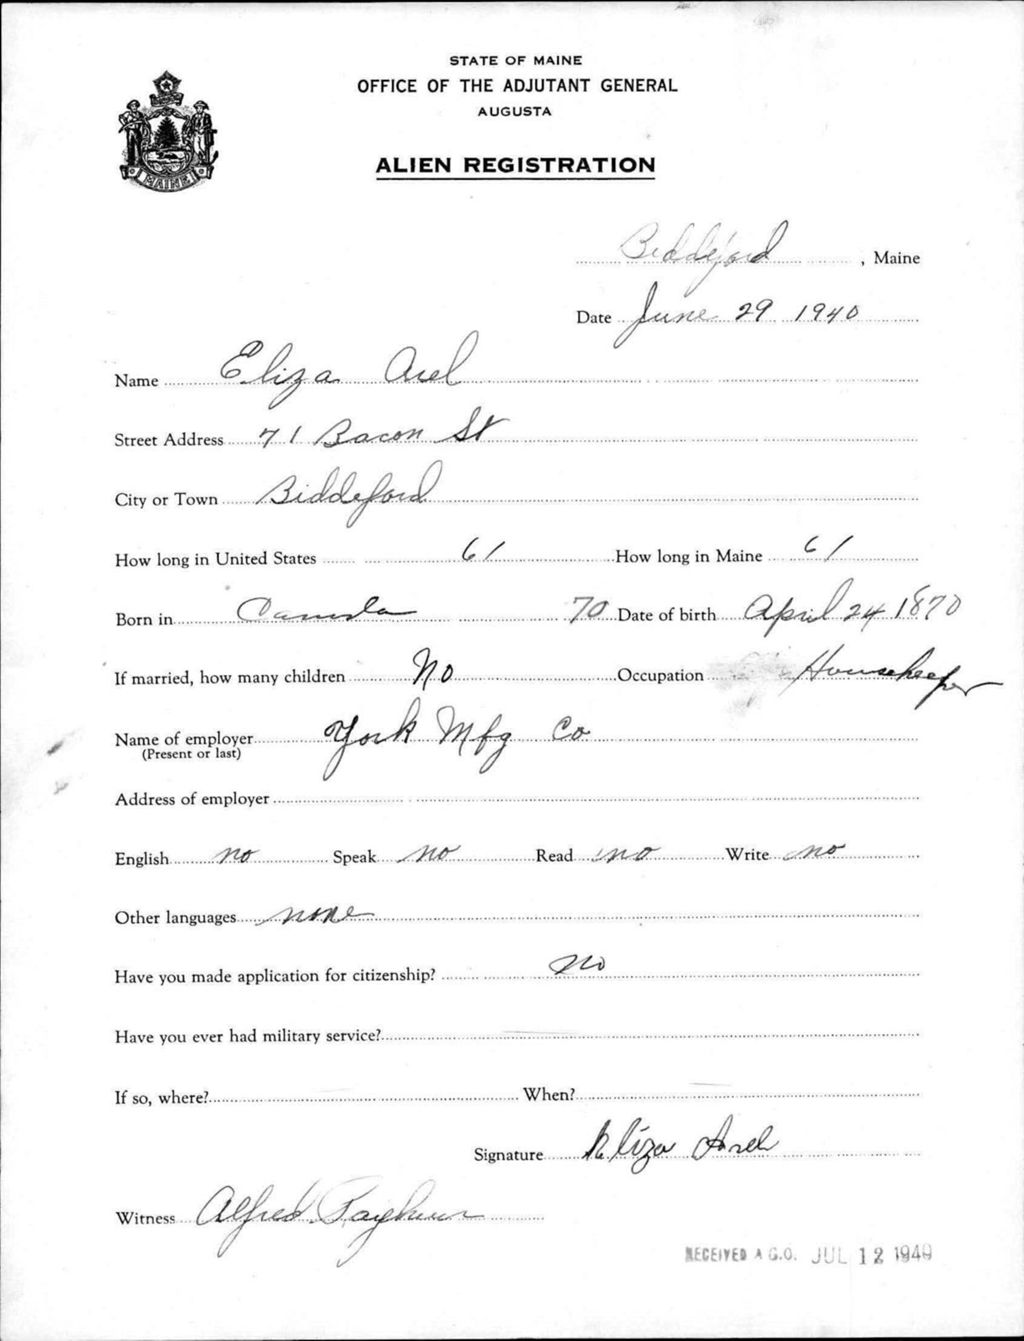 STATE OF MAINE
OFFICE OF THE ADJUTANT GENERAL
AUGUSTA
ALIEN REGISTRATION
MAINE
Biddeford, Maine
Date June 29 1940
Name Eliza Arel
Street Address 71 Bacon St
City or Town Biddeford
How long in United States 61 How long in Maine 61
Born in Canada 70 Date of birth April 24 1870
If married, how many children No Occupation Housekeeper
Name of employer York Mfg Co
(Present or last)
Address of employer
English no Speak no Read no Write no
Other languages none
Have you made application for citizenship? no
Have you ever had military service?
If so, where? When?
Signature Eliza Arel
Witness Alfred
RECEIVED A.G.O. JUL 12 1940